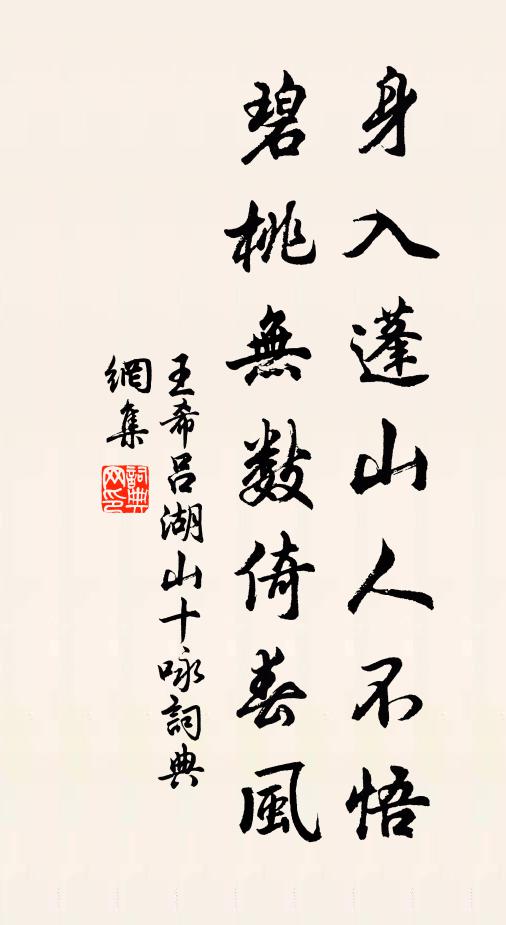 身入蓬山人不悟
碧桃無數倚春風
王希呂湖山十咏詞典
網集
詞典
网印